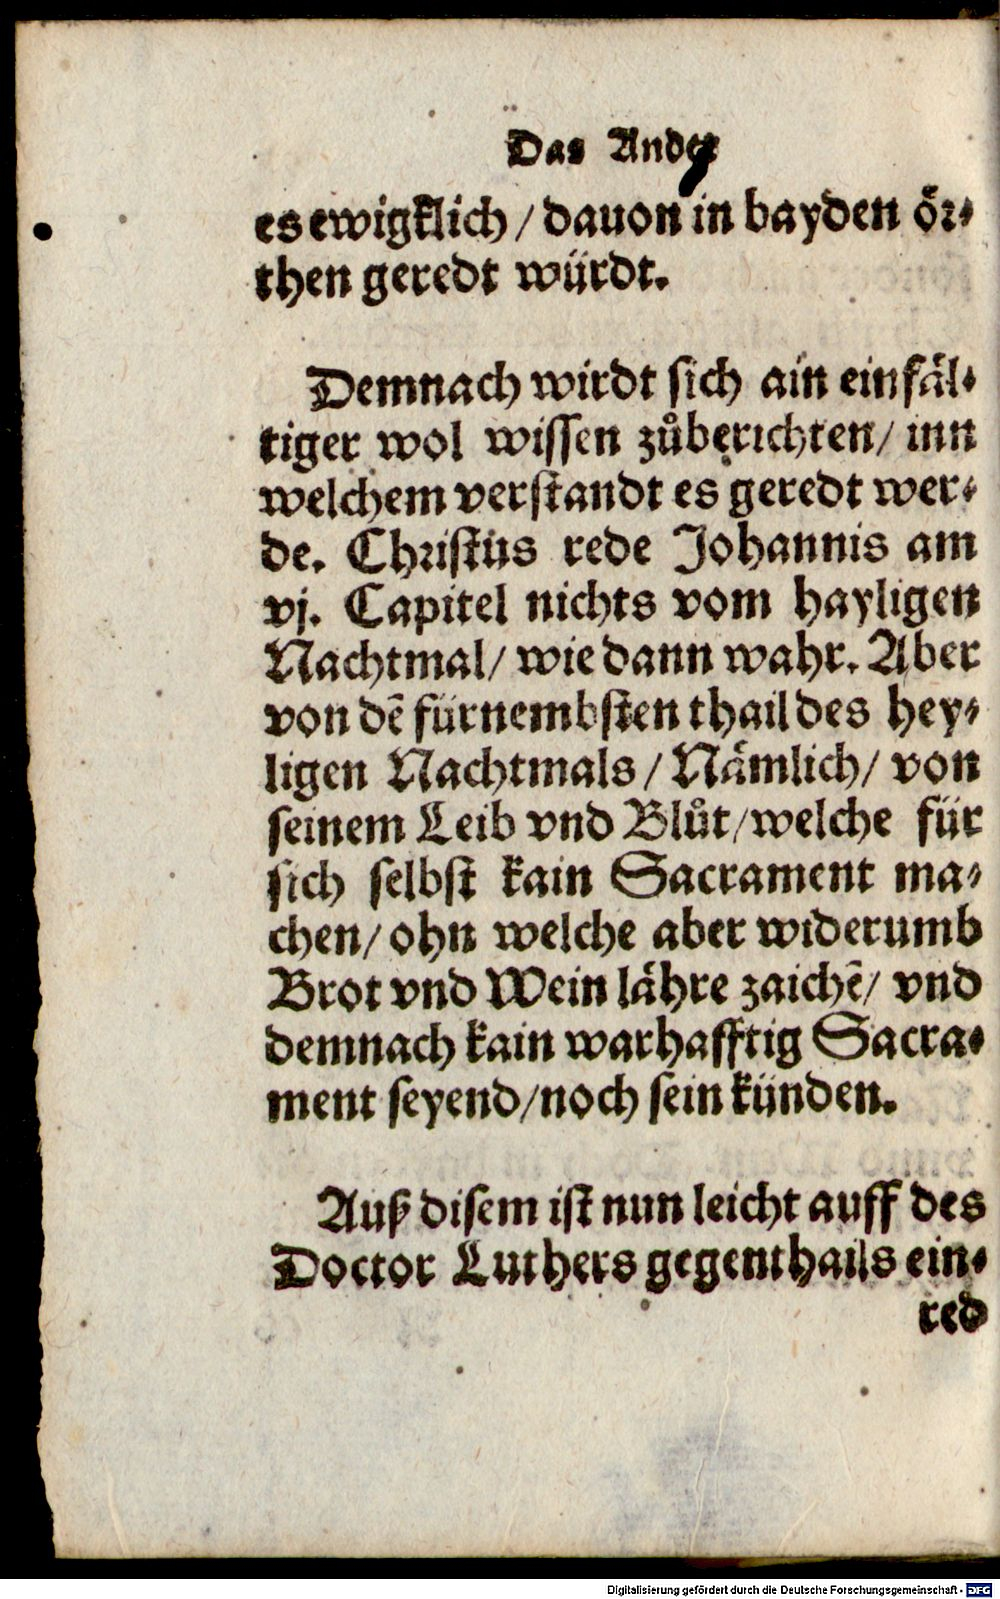 Das Ander
es ewigklich / dauon in bayden ör⸗
then geredt würdt.
Demnach wirdt sich ain einfäl⸗
tiger wol wissen zůberichten / inn
welchem verstandt es geredt wer⸗
de. Christus rede Johannis am
vj. Capitel nichts vom hayligen
Nachtmal / wie dann wahr. Aber
von dẽ fürnembsten thail des hey⸗
ligen Nachtmals / Nämlich / von
seinem Leib vnd Blůt / welche für
sich selbst kain Sacrament ma⸗
chen / ohn welche aber widerumb
Brot vnd Wein lähre zaichẽ / vnd
demnach kain warhafftig Sacra⸗
ment seyend / noch sein künden.
Auß disem ist nun leicht auff des
Doctor Luthers gegenthails ein⸗
red
Digitalisierung gefördert durch die Deutsche Forschungsgemeinschaft - DFG